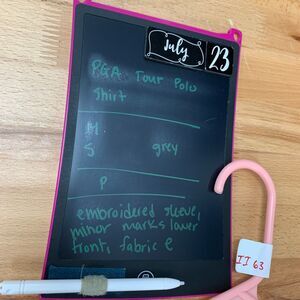 July 23
PGA Tour Polo
Shirt
M
S grey
P
embroidered sleeve,
minor marks lower
front, fabric e
IJ 63